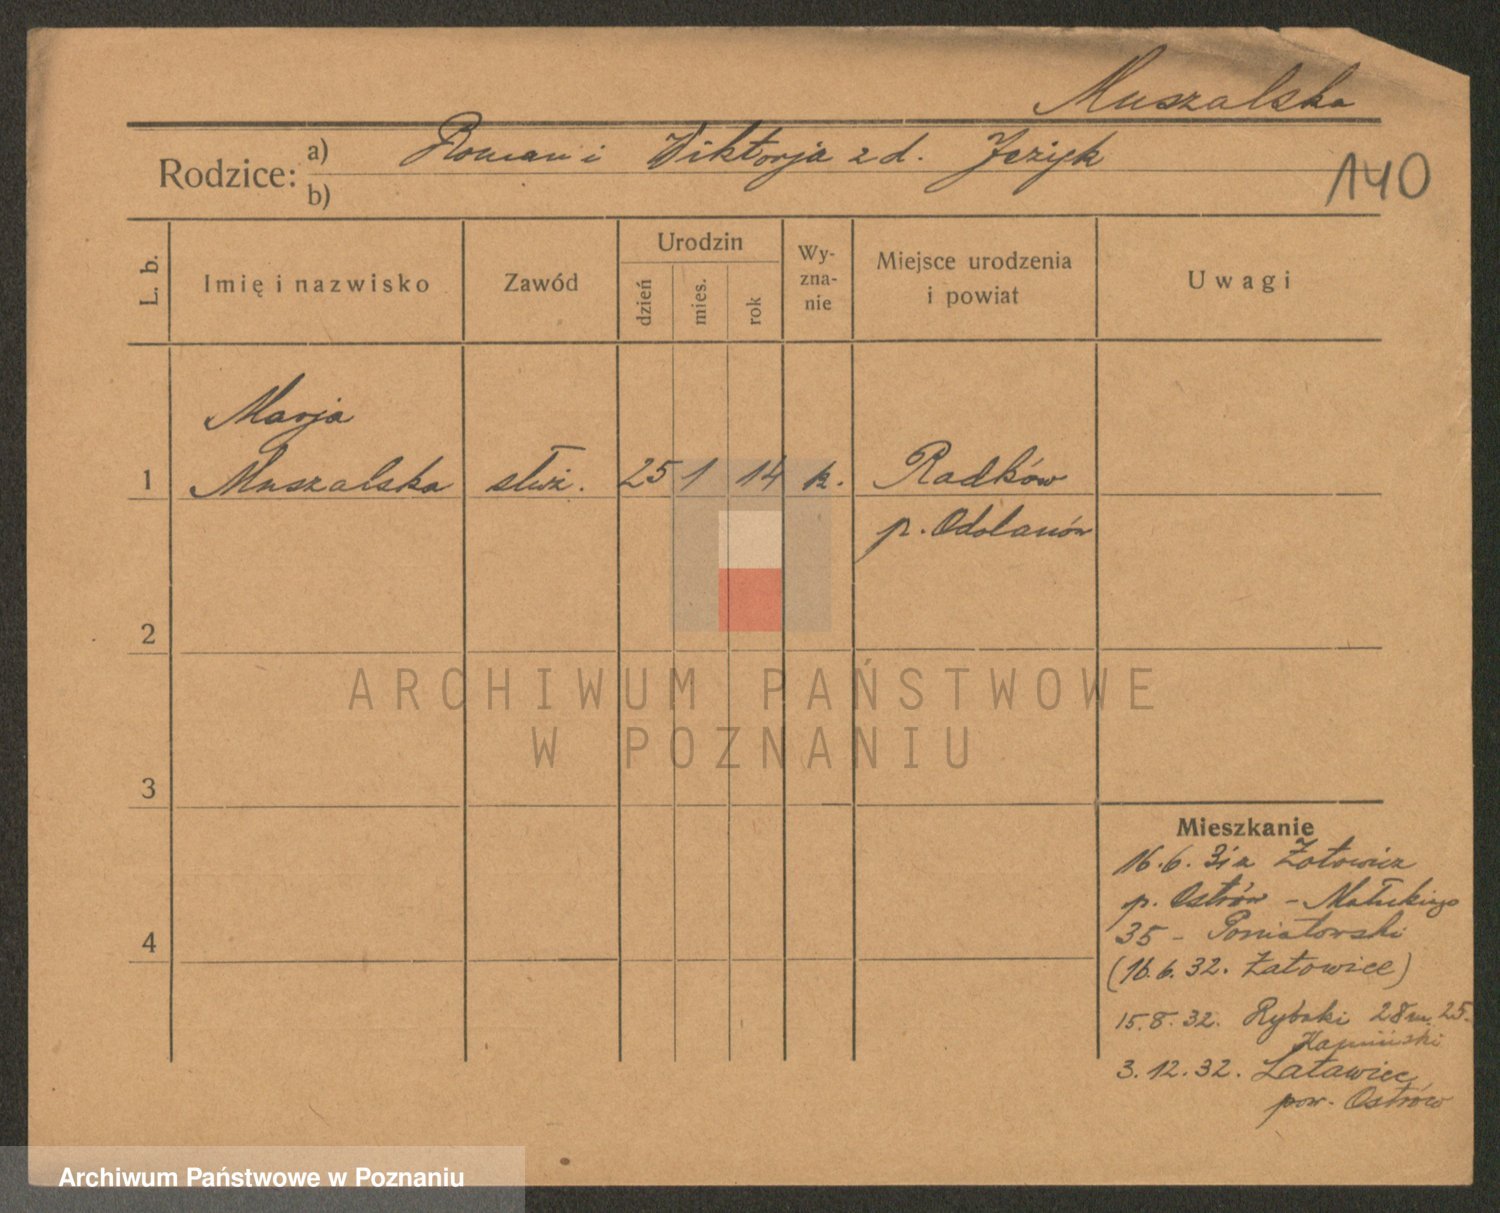 Muszalska
Rodzice: a) Roman i Wiktorja z d. Jeżyk
b)
140
L. b.
Imię i nazwisko
Zawód
Urodzin
dzień
mies.
rok
Wy-
zna-
nie
Miejsce urodzenia
i powiat
Uwagi
Marja
1 Muszalska służ. 25 1 14 k. Radków
p. Odolanów
2
3
4
ARCHIWUM PAŃSTWOWE
W POZNANIU
Mieszkanie
16.6. 31 z
p. Ostrów - Małeckiego
35 - Poniatowski
(16.6.32. Łatowice)
15.8.32. Rybaki 28 m. 25.
Kamiński
3.12.32. Latawiec
pow. Ostrów
Archiwum Państwowe w Poznaniu